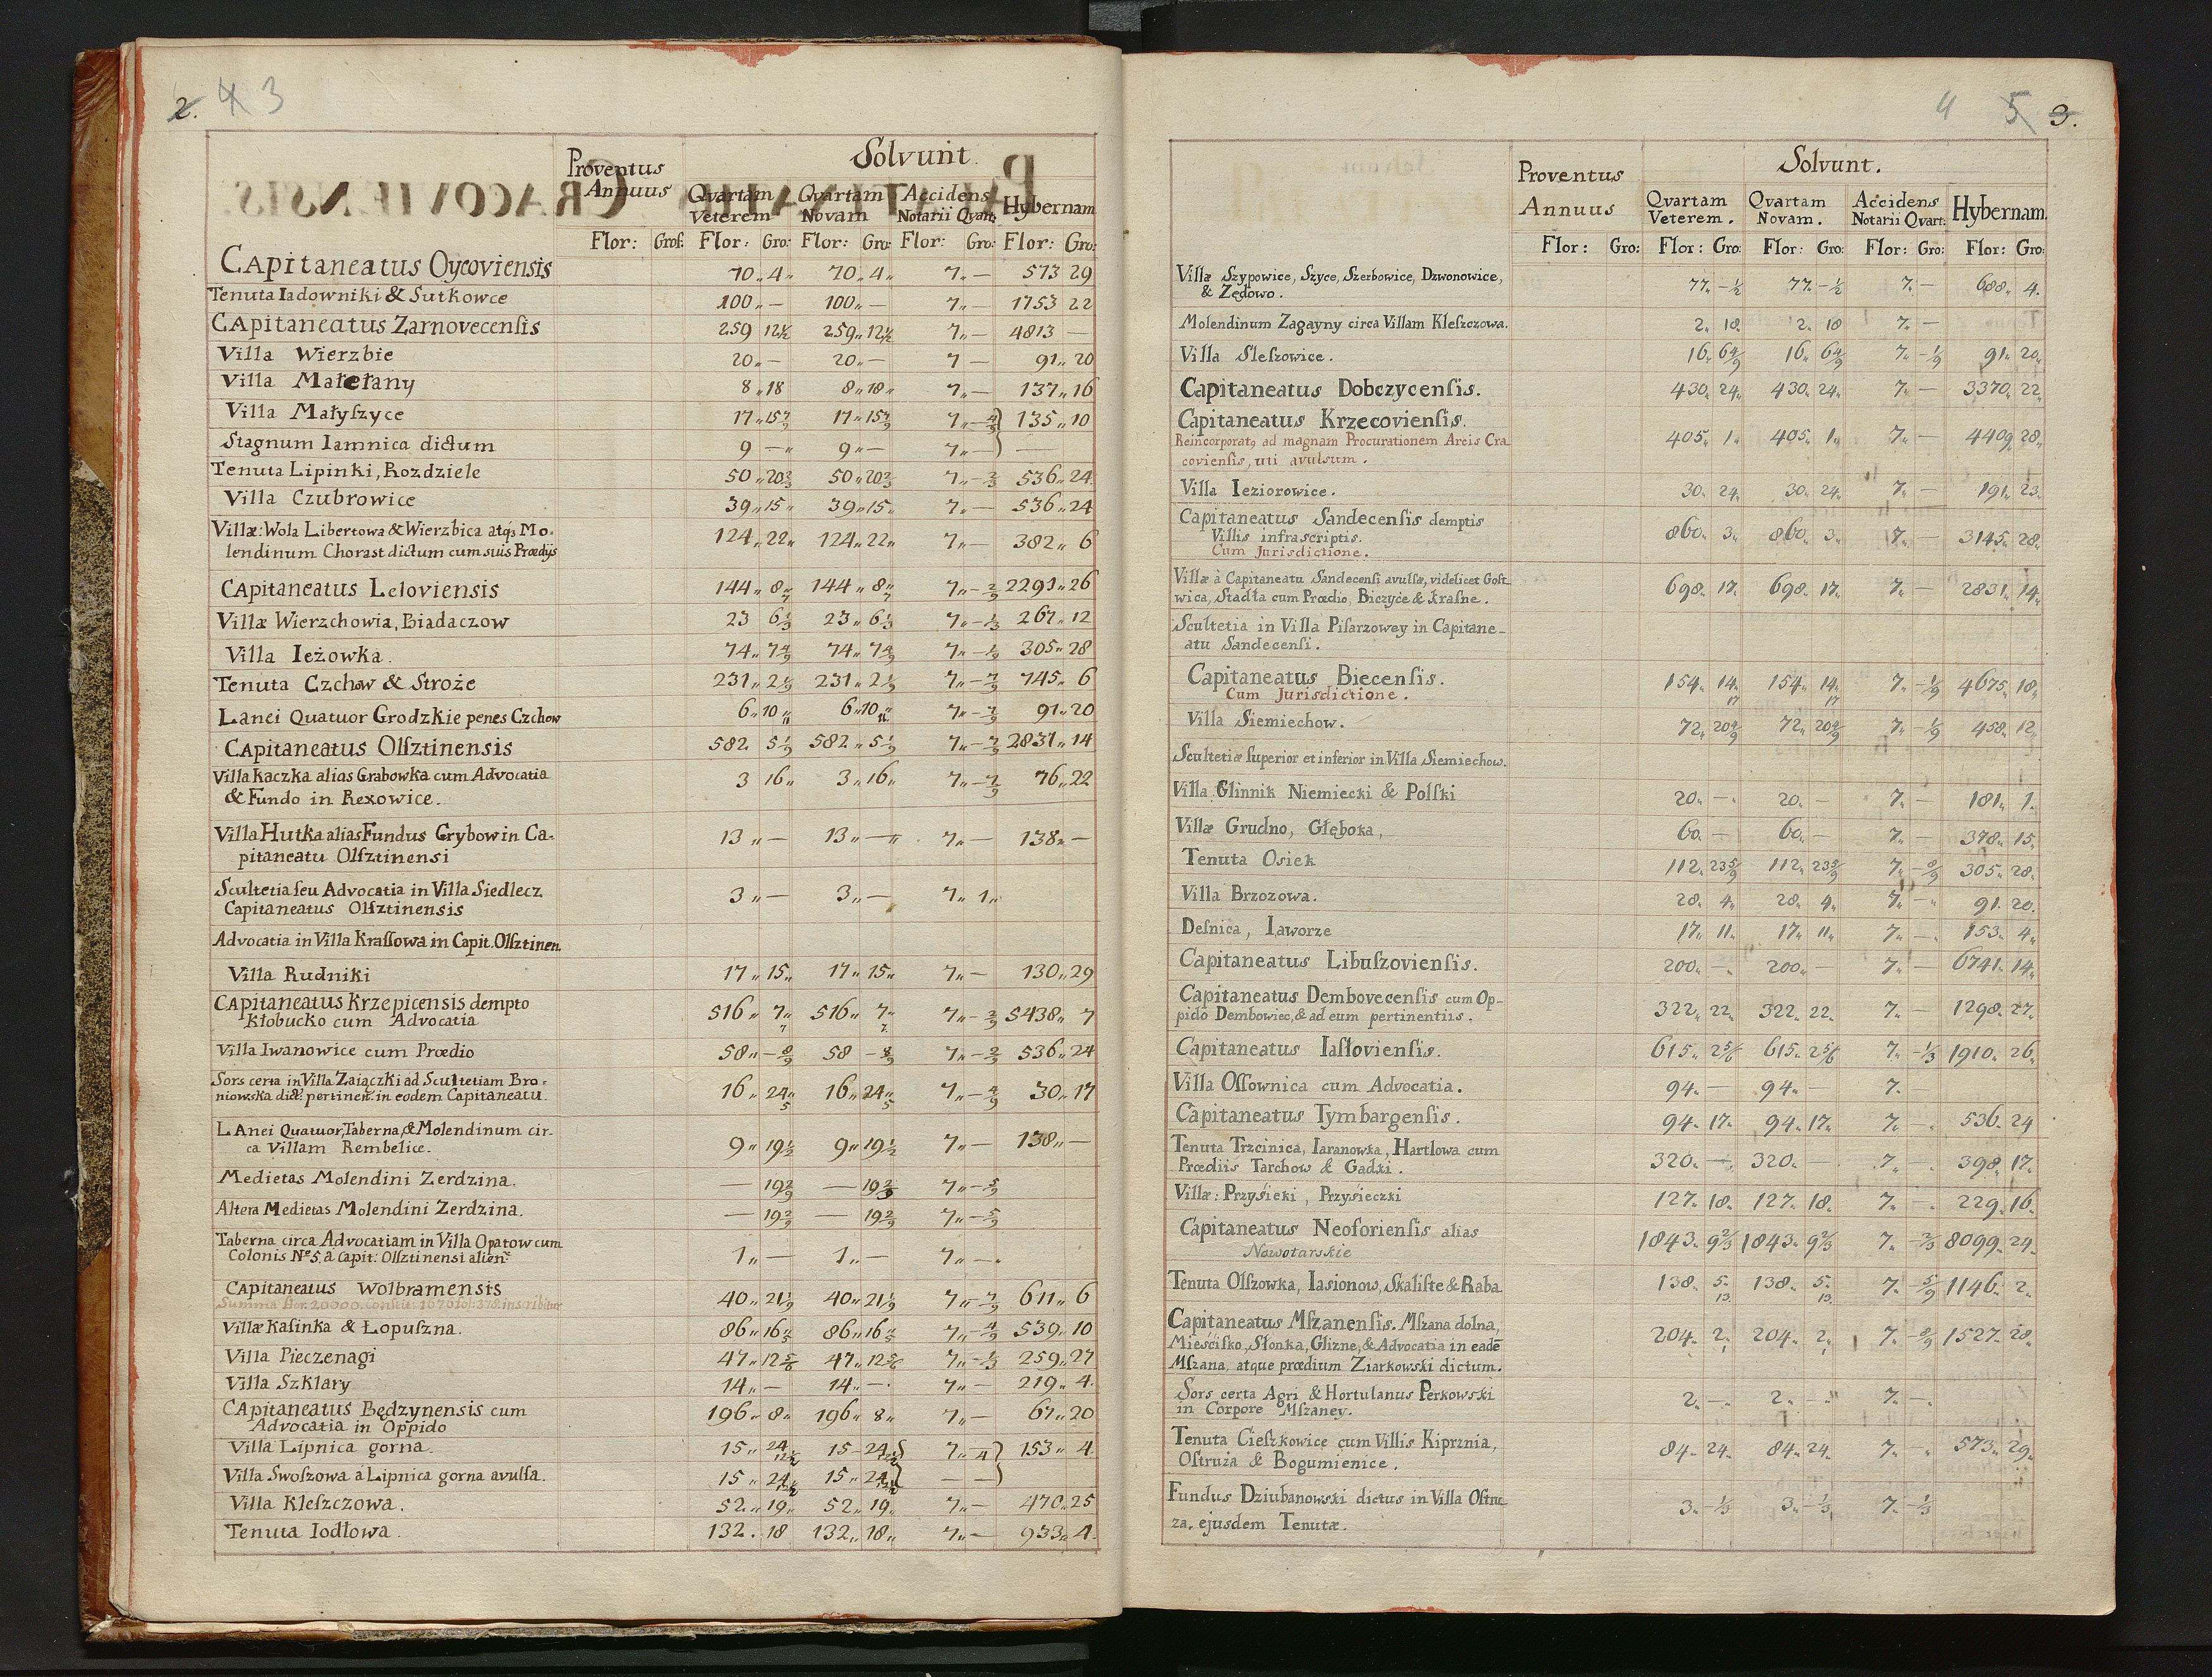 2. 4 3
Proventus Annuus
Solvunt.
Qvartam Veterem
Qvartam Novam
Accidens Notarii Qvart:
Hybernam
Flor: Gros: Flor: Gro: Flor: Gro: Flor: Gro: Flor: Gro:
Capitaneatus Oycoviensis 70 „ 4 „ 70 „ 4 „ 7 „ — 573 29
Tenuta Iadowniki & Sutkowce 100 „ — 100 „ — 7 „ — 1753 22
Capitaneatus Zarnovecensis 259 12½ 259 „ 12½ 7 „ — 4813 —
Villa Wierzbie 20 „ — 20 „ — 7 — 91 „ 20
Villa Małełany 8 „ 18 8 „ 18 „ 7 „ — 137 „ 16
Villa Małyszyce 17 „ 15 7/9 17 „ 15 7/9 7 „ — 4/9 } 135 „ 10
Stagnum Iamnica dictum 9 — „ 9 „ — 7 „ — } —
Tenuta Lipinki, Rozdziele 50 „ 20 2/3 50 „ 20 2/3 7 „ — 2/3 536 „ 24
Villa Czubrowice 39 „ 15 „ 39 „ 15 „ 7 „ — 536 „ 24
Villæ: Wola Libertowa & Wierzbica atqs Mo-
lendinum Chorast dictum cum suis Prædys 124 „ 22 „ 124 „ 22 „ 7 „ — 382 „ 6
Capitaneatus Leloviensis 144 „ 8 „ 7 144 „ 8 „ 7 7 „ — 2/9 2291 „ 26
Villæ Wierzchowia, Biadaczow 23 6 1/3 23 „ 6 1/3 7 „ — 1/3 267 „ 12
Villa Ieżowka. 74 „ 7 4/9 74 „ 7 4/9 7 „ — 1/9 305 „ 28
Tenuta Czchow & Stroże 231 „ 2 1/9 231 „ 2 1/9 7 „ — 7/9 745 „ 6
Lanei Quatuor Grodzkie penes Czchow 6 „ 10 „ 11 6 „ 10 „ 11 7 „ — 7/9 91 „ 20
Capitaneatus Olsztinensis 582 5 1/9 582 „ 5 1/9 7 „ — 7/9 2831 „ 14
Villa Kaczka alias Grabowka cum Advocatia
& Fundo in Rexowice. 3 16 „ 3 „ 16 „ 7 „ — 7/9 76 „ 22
Villa Hutka alias Fundus Grybow in Ca-
pitaneatu Olsztinensi 13 „ — 13 „ — „ 7 „ — 138 „ —
Scultetia seu Advocatia in Villa Siedlecz
Capitaneatus Olsztinensis 3 „ — 3 „ — 7 „ 1 „
Advocatia in Villa Krassowa in Capit. Olsztinen.
Villa Rudniki 17 „ 15 „ 17 „ 15 „ 7 „ — 130 „ 29
Capitaneatus Krzepicensis dempto
Kłobucko cum Advocatia 516 „ 7 „ 7 516 „ 7 „ 7 7 „ — 2/9 5438 „ 7
Villa Iwanowice cum Prædio 58 „ — 8/9 58 — 8/9 7 „ — 2/9 536 „ 24
Sors certa in Villa Zaiączki ad Scultetiam Bro-
niowska dict: pertinen: in eodem Capitaneatu. 16 „ 24 „ 5 16 „ 24 „ 5 7 „ — 4/9 30 „ 17
Lanei Quatuor, Taberna, & Molendinum cir-
ca Villam Rembelice. 9 „ 19½ 9 „ 19½ 7 „ — 138 „ —
Medietas Molendini Zerdzina. — 19 2/9 — 19 2/9 7 „ — 5/9
Altera Medietas Molendini Zerdzina. — 19 2/9 — 19 2/9 7 „ — 5/9
Taberna circa Advocatiam in Villa Opatow cum
Colonis Nº 5. à Capit: Olsztinensi alien: 1 „ — 1 „ — 7 „ —.
Capitaneatus Wolbramensis
Summa flor. 20000. constit: 1676 fol: 378. inscribitur 40 „ 21 1/9 40 „ 21 1/9 7 „ — 7/9 611 „ 6
Villæ Kasinka & Łopuszna. 86 „ 16 86 „ 16 7 „ — 539 „ 10
Villa Pieczenagi 47 „ 12 5/6 47 „ 12 5/6 7 „ — 1/3 259 „ 27
Villa Szklary 14 „ — 14 „ —. 7 „ — 219 „ 4.
Capitaneatus Będzynensis cum
Advocatia in Oppido 196 „ 8 „ 196 „ 8 „ 7 „ — 67 „ 20
Villa Lipnica gorna. 15 „ 24 15 — 24 } 7 „ 4 } 153 „ 4.
Villa Swoszowa à Lipnica gorna avulsa. 15 „ 24 15 „ 24 } — — }
Villa Kleszczowa. 52 „ 19 „ 52 „ 19 „ 7 „ — 470 „ 25
Tenuta Iodłowa. 132. 18 132 „ 18 „ 7 „ — 933 „ 4.
4 5 3.
Proventus Annuus
Solvunt.
Qvartam Veterem.
Qvartam Novam.
Accidens Notarii Qvart:
Hybernam.
Flor: Gro: Flor: Gro: Flor: Gro: Flor: Gro: Flor: Gro:
Villæ Szypowice, Szyce, Szerbowice, Dzwonowice,
& Zędowo. 77 „ — ½ 77 „ — ½ 7 „ — 688 „ 4.
Molendinum Zagayny circa Villam Kleszczowa. 2 „ 18 2 „ 18 7 „ —
Villa Sleszowice. 16 „ 6 4/9 16 „ 6 4/9 7 „ — 1/9 91 „ 20 „
Capitaneatus Dobczycensis. 430 „ 24 „ 430 „ 24 „ 7 „ — 3370 „ 22 „
Capitaneatus Krzecoviensis.
Reincorporatq ad magnam Procurationem Arcis Cra-
coviensis, uti avulsum. 405 „ 1 „ 405 „ 1 „ 7 „ — 4409 „ 28 „
Villa Ieziorowice. 30 „ 24 „ 30 „ 24 „ 7 „ — 191 „ 23 „
Capitaneatus Sandecensis demptis
Villis infrascriptis.
Cum Jurisdictione. 860 „ 3 „ 860 „ 3 „ 7 „ — 3145 „ 28 „
Villæ à Capitaneatu Sandecensi avulsæ, videlicet Gost-
wica, Stadła cum Prædio, Biczyce & Krasne. 698 „ 17 „ 698 „ 17 „ 7 „ — 2831 „ 14 „
Scultetia in Villa Pisarzowey in Capitane-
atu Sandecensi.
Capitaneatus Biecensis.
Cum Jurisdictione. 154 „ 14 „ 17 154 „ 14 „ 17 7 „ — 1/9 4675 „ 18 „
Villa Siemiechow. 72 „ 20 4/9 72 „ 20 4/9 7 „ — 1/9 458 „ 12 „
Scultetiæ superior et inferior in Villa Siemiechow.
Villa Glinnik Niemiecki & Polski 20 „ — 20 „ — 7 „ — 181 „ 1.
Villæ Grudno, Głęboka, 60 „ — 60 „ — 7 „ — 378 „ 15 „
Tenuta Osiek 112 „ 23 5/9 112 „ 23 5/9 7 „ — 8/9 305 „ 28 „
Villa Brzozowa. 28 „ 4 „ 28 „ 4 „ 7 „ — „ 91. 20.
Desnica, Iaworze 17 „ 11 „ 17 „ 11 „ 7 „ — 153 „ 4 „
Capitaneatus Libuszoviensis. 200 „ — 200 „ — 7 „ — 6741 „ 14 „
Capitaneatus Dembovecensis cum Op-
pido Dembowiec, & ad eum pertinentiis. 322 „ 22 „ 322 „ 22 „ 7 „ — 1298 „ 27 „
Capitaneatus Iasłoviensis. 615 „ 2 5/6 615 „ 2 5/6 7 „ — 1/3 1910 „ 26 „
Villa Ossownica cum Advocatia. 94 „ — 94 „ — 7 „
Capitaneatus Tymbargensis. 94 „ 17 „ 94 „ 17 „ 7 „ — 536 „ 24
Tenuta Trzcinica, Iaranowka, Hartlowa cum
Prædiis Tarchow & Gądki. 320 „ — 320 „ — 7 „ — 398 „ 17 „
Villæ: Przysieki, Przysieczki 127 „ 18 „ 127 „ 18 „ 7 „ — 229 „ 16 „
Capitaneatus Neoforiensis alias
Nowotarskie 1843 „ 9 2/3 1843 „ 9 2/3 7 „ — 2/3 8099 „ 24 „
Tenuta Olszowka, Iasionow, Skaliste & Raba 138 „ 5 „ 13 138 „ 5 „ 13 7 „ 5/9 1146 „ 2 „
Capitaneatus Mszanensis. Mszana dolna,
Mieścisko, Słonka, Glizne, & Advocatia in eadē
Mszana, atque prædium Ziarkowski dictum. 204 „ 2 „ 204 „ 2 „ 7 „ — 8/9 1527 „ 28 „
Sors certa Agri & Hortulanus Perkowski
in Corpore Mszaney. 2 „ — 2 „ — 7 „ —
Tenuta Cieszkowice cum Villis Kiprznia,
Ostruża & Bogumienice. 84 „ 24 „ 84 „ 24 „ 7 „ — 573 „ 29 „
Fundus Dziubanowski dictus in Villa Ostru-
za, ejusdem Tenutæ. 3 „ — 1/3 3 „ — 1/3 7 „ — 1/3